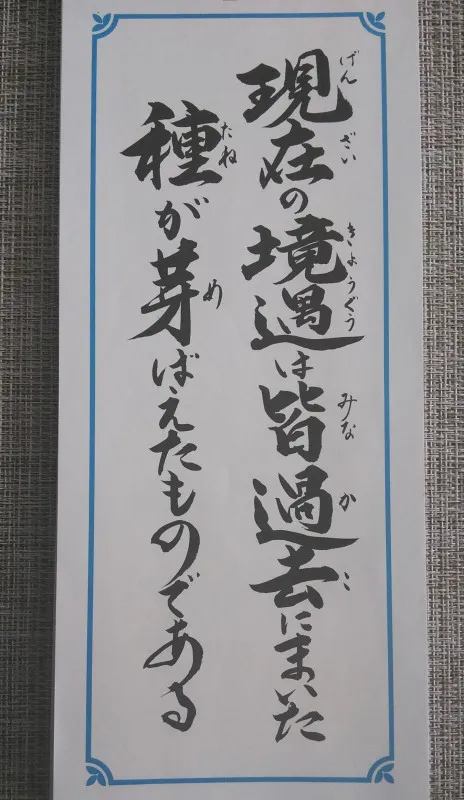 現在の境遇は皆過去にまいた
げんざい きょうぐう みな かこ
種が芽ばえたものである
たね め